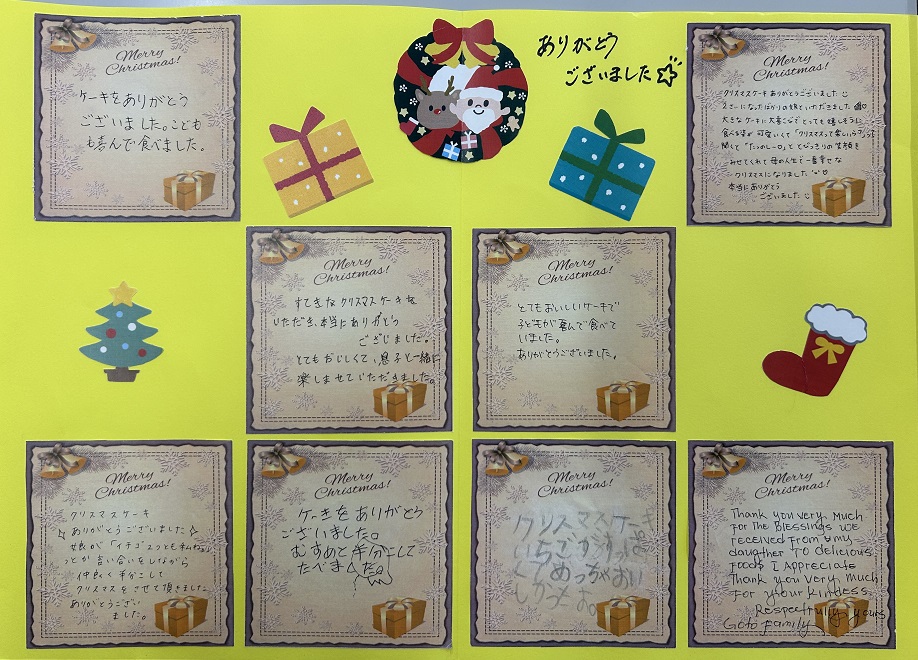 Merry
Christmas!
ケーキをありがとう
ございました。こども
も喜んで食べました。
ありがとう
ございました☆
Merry
Christmas!
クリスマスケーキありがとうございました
2さいになったばかりの娘といただきました
大きなケーキに大喜びでとっても嬉しそうに
食べる姿が可愛いくて「クリスマスって楽しいう?」って
聞くて「たのしーの」ととびっきりの笑顔を
みせてくれて母の人生で一番幸せな
クリスマスになりました
本当にありがとう
ございました
Merry
Christmas!
すてきなクリスマスケーキを
いただき、本当にありがとう
ございました。
とてもおいしくて、息子と一緒に
楽しませていただきました。
Merry
Christmas!
とてもおいしいケーキで
子どもが喜んで食べて
いました。
ありがとうございました。
Merry
Christmas!
クリスマスケーキ
☆ありがとうございました☆
娘が「イチゴ2っともまねっ
とか言い合いをしながら
仲良く半分こして
クリスマスをさせて頂きました
ありがとうござい
ました。
Merry
Christmas!
ケーキをありがとう
ございました。
むすめと半分こして
たべました。
Merry
Christmas!
クリスマスケーキ
いちごがすっぱ
くてめっちゃおい
しかったよ。
Merry
Christmas!
Thank you very much
For The Blessings we
received from my
daughter TO delicious
Foods I Appreciate
Thank you very much
For your kindess.
Respectfully yours
Goto family